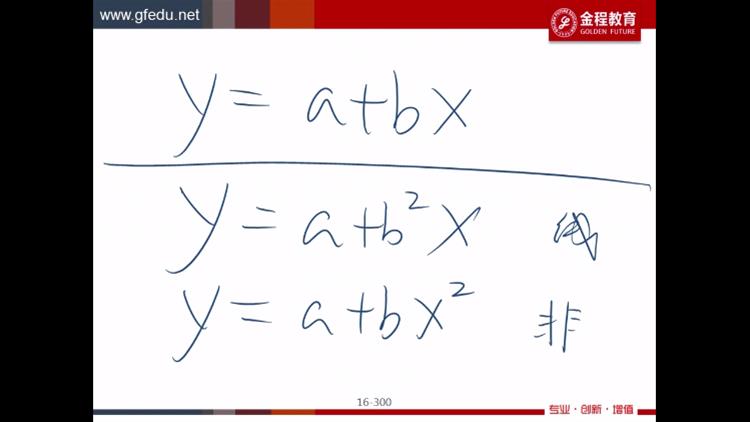 www.gfedu.net
金程教育
GOLDEN FUTURE
y = a+bx
y = a+b²x 线
y = a+bx² 非
16-300
专业·创新·增值